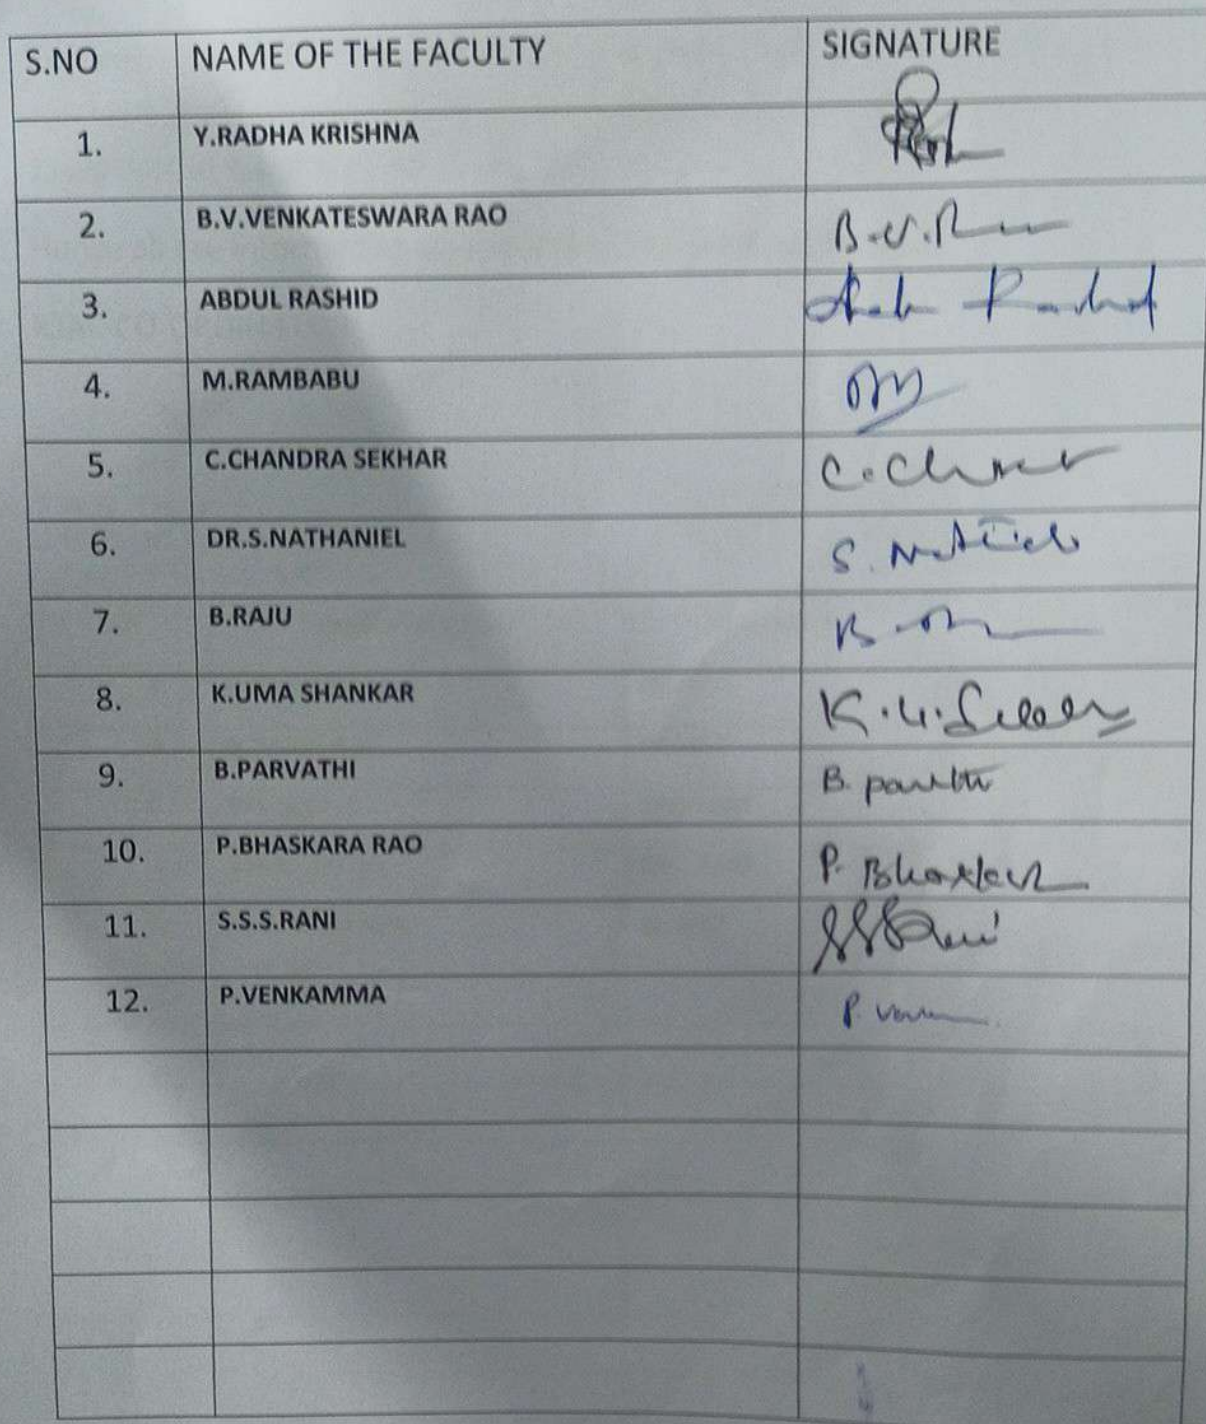 S.NO NAME OF THE FACULTY SIGNATURE
1. Y.RADHA KRISHNA
2. B.V.VENKATESWARA RAO B.V.R
3. ABDUL RASHID
4. M.RAMBABU
5. C.CHANDRA SEKHAR
6. DR.S.NATHANIEL
7. B.RAJU
8. K.UMA SHANKAR
9. B.PARVATHI B. parvathi
10. P.BHASKARA RAO P. Bhaskar
11. S.S.S.RANI SSSRani
12. P.VENKAMMA